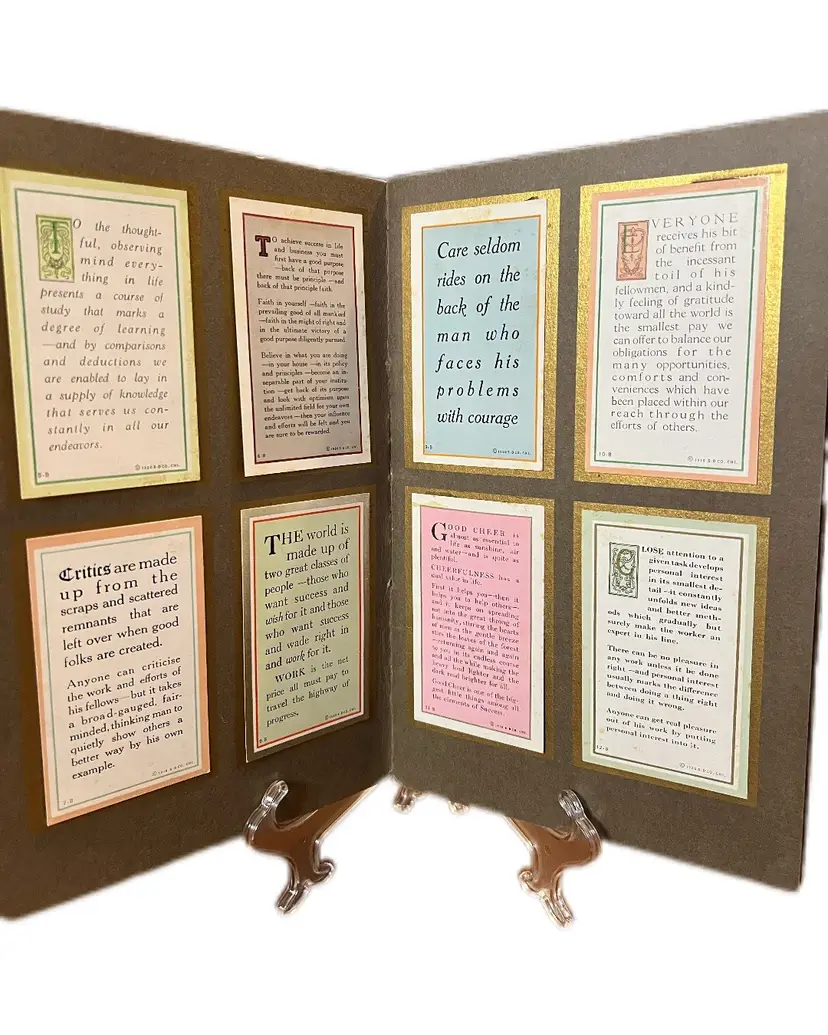 TO the thought-
ful, observing
mind every-
thing in life
presents a course of
study that marks a
degree of learning
—and by comparisons
and deductions we
are enabled to lay in
a supply of knowledge
that serves us con-
stantly in all our
endeavors.
5-B
TO achieve success in life
and business you must
first have a good purpose
—back of that purpose
there must be principle—and
back of that principle faith.
Faith in yourself—faith in the
prevailing good of all mankind
—faith in the might of right and
in the ultimate victory of a
good purpose diligently pursued.
Believe in what you are doing
—in your house—in its policy
and principles—become an in-
separable part of your institu-
tion—get back of its purpose
and look with optimism upon
the unlimited field for your own
endeavors—then your influence
and efforts will be felt and you
are sure to be rewarded.
Critics are made
up from the
scraps and scattered
remnants that are
left over when good
folks are created.
Anyone can criticise
the work and efforts of
his fellows—but it takes
a broad-gauged, fair-
minded, thinking man to
quietly show others a
better way by his own
example.
7-B
THE world is
made up of
two great classes of
people—those who
want success and
wish for it and those
who want success
and wade right in
and work for it.
WORK is the net
price all must pay to
travel the highway of
progress.
Care seldom
rides on the
back of the
man who
faces his
problems
with courage
EVERYONE
receives his bit
of benefit from
the incessant
toil of his
fellowmen, and a kind-
ly feeling of gratitude
toward all the world is
the smallest pay we
can offer to balance our
obligations for the
many opportunities,
comforts and con-
veniences which have
been placed within our
reach through the
efforts of others.
10-B
GOOD CHEER is
almost as essential to
life as sunshine, air
and water—and is quite as
plentiful.
CHEERFULNESS has a
dual value in life.
First it helps you—then it
helps you to help others—
and it keeps on spreading
out into the great throng of
humanity, stirring the hearts
of men as the gentle breeze
stirs the leaves of the forest
—returning again and again
to you in its endless course
and all the while making the
heavy load lighter and the
dark road brighter for all.
Good Cheer is one of the big-
gest little things among all
the elements of Success.
CLOSE attention to a
given task develops
personal interest
in its smallest de-
tail—it constantly
unfolds new ideas
and better meth-
ods which gradually but
surely make the worker an
expert in his line.
There can be no pleasure in
any work unless it be done
right—and personal interest
usually marks the difference
between doing a thing right
and doing it wrong.
Anyone can get real pleasure
out of his work by putting
personal interest into it.
12-B